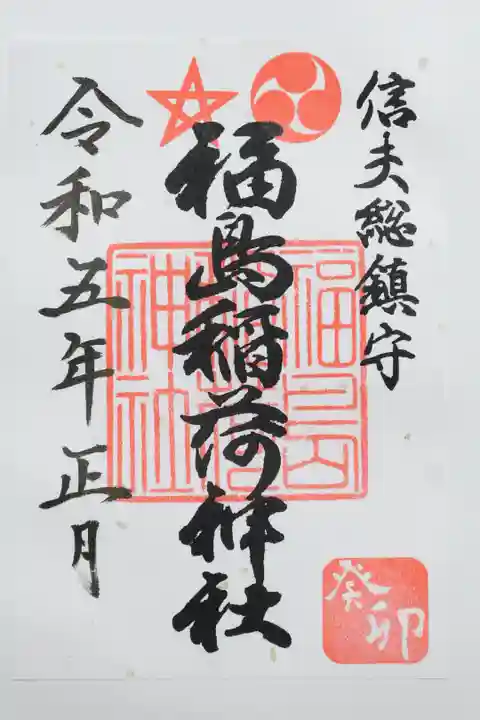 信夫総鎮守
福島稲荷神社
福島稲荷神社
令和五年正月
癸卯